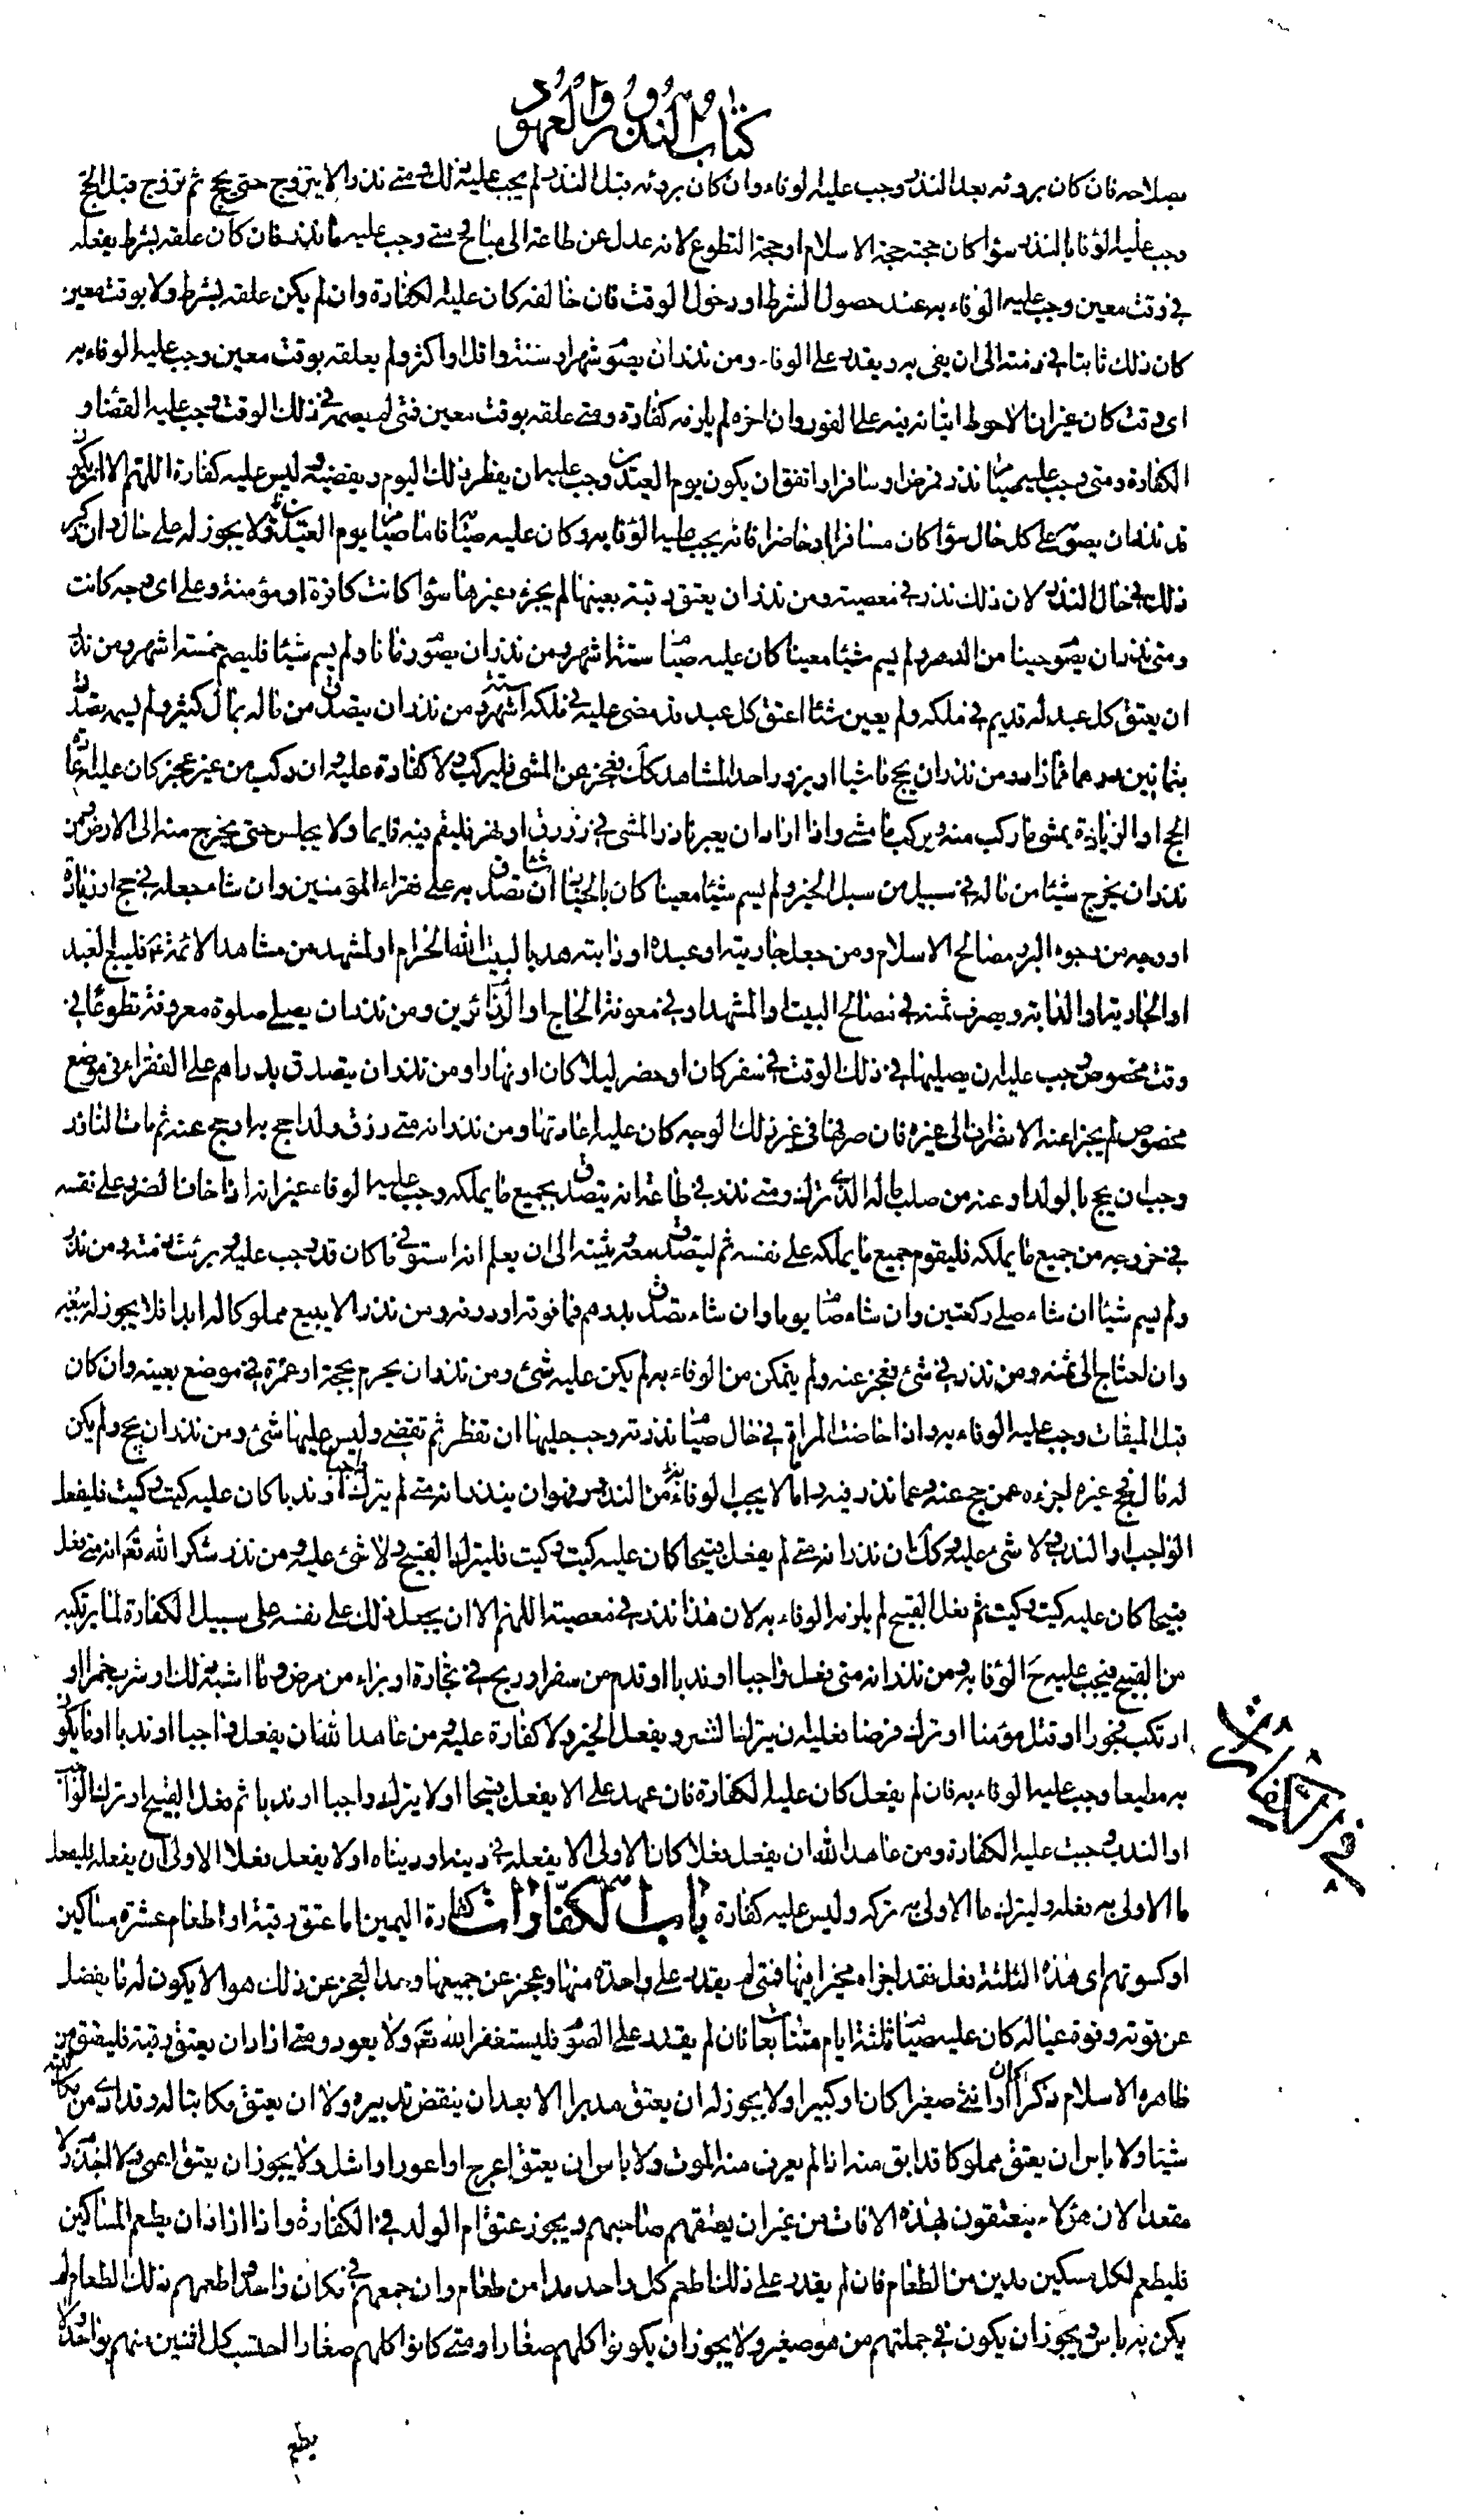 كتاب النذور والعهود
بصلاحه فان كان برؤه بعد النذر وجب عليه الوفاء وان كان برؤه قبل النذر لم يجب عليه ذلك ومتى نذر الا يتزوج حتى يحج ثم تزوج قبل الحج
وجب عليه الوفا بالنذر سوا كان حجته حجة الاسلام او حجة التطوع لانه عدل عن طاعة الى مباح ومتى وجب عليه ما نذر فان كان علقه بشرط يفعله
في وقت معين وجب عليه الوفاء به عند حصول الشرط او دخول الوقت فان خالفه كان عليه الكفارة وان لم يكن علقه بشرط ولا بوقت معين
كان ذلك ثابتا في ذمته الى ان يفى به ويقدر على الوفاء ومن نذر ان يصوم شهرا وسنة واقل او اكثر ولم يعلقه بوقت معين وجب عليه الوفاء به
اى وقت كان غير ان الاحوط اتيانه به على الفور وان اخره لم يلزمه كفارة ومتى علقه بوقت معين فمتى لم يصمه في ذلك الوقت وجب عليه القضاء و
الكفارة ومتى وجب عليه صيام نذر فمرض او سافر او اتفق ان يكون يوم العيدين وجب عليه ان يفطر ذلك اليوم ويقضيه وليس عليه كفارة اللهم الا ان يكون
قد نذر ان يصوم على كل حال سوا كان مسافرا او حاضرا فانه يجب عليه الوفا به وكان عليه صيام فاما صيام يوم العيدين فلا يجوز له على حال وان ذكر
ذلك في حال النذر لان ذلك نذر في معصية ومن نذر ان يعتق رقبة بعينها لم يجزه غيرها سوا كانت كافرة او مؤمنة وعلى اى وجه كانت
ومتى نذر ان يصوم حينا من الدهر ولم يسم شيئا معينا كان عليه صيام ستة اشهر ومن نذر ان يصوم زمانا ولم يسم شيئا فليصم خمسة اشهر ومن نذر
ان يعتق كل عبد له قديم في ملكه ولم يعين شئا اعتق كل عبد قد مضى عليه في ملكه ستة اشهر ومن نذر ان يتصدق من ماله بمال كثير ولم يسمه تصدق
بثمانين درهما فما زاد ومن نذر ان يحج ماشيا او يزور احد المشاهد كك فعجز عن المشى فليركب ولا كفارة عليه وان ركب من غير عجز كان عليه اعادة
الحج او الزيادة يمشى ما ركب منه ويركب ما مشى واذا اراد ان يعبر ناذر المشى في زورق او نهر فليقم فيه قايما ولا يجلس حتى يخرج منه الى الارض ومن
نذر ان يخرج شيئا من ماله في سبيل من سبل الخير ولم يسم شيئا معينا كان بالخيار ان شاء تصدق به على فقراء المؤمنين وان شاء جعله في حج او زيارة
او وجه من وجوه البر ومصالح الاسلام ومن جعل جاريته او عبده او دابته هديا لبيت الله الحرام او لمشهد من مشاهد الائمة ع فليبع العبد
او الجارية او الدابة ويصرف ثمنه في مصالح البيت او المشهد او في معونة الحاج او الزائرين ومن نذر ان يصلى صلوة معروفة تطوعا في
وقت مخصوص وجب عليه ان يصليها في ذلك الوقت في سفر كان او حضر ليلا كان او نهارا ومن نذر ان يتصدق بدراهم على الفقراء في موضع
مخصوص لم يجز عنه الانصراف الى غيره فان صرفها في غير ذلك الوجه كان عليه اعادتها ومن نذر انه متى رزق ولدا حج به او حج عنه ثم مات الناذر
وجب ان يحج بالولد او عنه من صلب ماله الذى ترك ومتى نذر في طاعة انه يتصدق بجميع ما يملكه وجب عليه الوفاء غير انه اذا خاف الضرر على نفسه
في خروجه من جميع ما يملكه فليقوم جميع ما يملكه على نفسه ثم ليتصدق معه يثبته الى ان يعلم انه استوفى ما كان قد وجب عليه وبرئت ذمته ومن نذر
ولم يسم شيئا ان شاء صلى ركعتين وان شاء صام يوما وان شاء تصدق بدرهم فما فوقه او دونه ومن نذر الا يبيع مملوكا له ابدا فلا يجوز له بيعه
وان احتاج الى ثمنه ومن نذر في شئ فعجز عنه ولم يتمكن من الوفاء به لم يكن عليه شئ ومن نذر ان يحرم بحجة او عمرة في موضع بعينه وان كان
قبل الميقات وجب عليه الوفاء به واذا حاضت المراة في حال صيام نذرته وجب عليها ان تفطر ثم تقضى وليس عليها شئ ومن نذر ان يحج ولم يكن
له مال فحج عن غيره اجزءه عمن حج عنه وعما نذر فيه واما لا يجب الوفاء به من النذر فهو ان ينذر انه متى لم يترك واجبا او ندبا كان عليه كيت وكيت فليفعل
الواجب او الندب ولا شئ عليه وكك ان نذر انه متى لم يفعل قبيحا كان عليه كيت وكيت فليترك القبيح ولا شئ عليه ومن نذر شكرا لله تع انه متى فعل
قبيحا كان عليه كيت وكيت ثم فعل القبيح لم يلزمه الوفاء به لان هذا نذر في معصية اللهم الا ان يجعل ذلك على نفسه على سبيل الكفارة لما يرتكبه
من القبيح فيجب عليه ح الوفا به ومن نذر انه متى فعل واجبا او ندبا او قدم من سفر او ربح في تجارة او براء من مرض وما اشبه ذلك او شرب خمرا او
ارتكب فجورا او قتل مؤمنا او ترك فرضا فعليه ان يترك الشر ويفعل الخير ولا كفارة عليه ومن عاهد الله ان يفعل واجبا او ندبا او ما يكون
به مطيعا وجب عليه الوفاء به فان لم يفعل كان عليه الكفارة فان عهد على الا يفعل قبيحا او لا يترك واجبا او ندبا ثم فعل القبيح او ترك الواجب
او الندب وجبت عليه الكفارة ومن عاهد الله ان يفعل فعلا كان الاولى الا يفعله في دينه او دنياه او لا يفعل فعلا الاولى ان يفعله فليفعل
ما الاولى به فعله وليترك ما الاولى به تركه وليس عليه كفارة باب الكفارات كفارة اليمين اما عتق رقبة او اطعام عشرة مساكين
او كسوتهم اى هذه الثلثة فعل فقد اجزاه مخير ايها فمتى لم يقدر على واحدة منها وعجز عن جميعها وحد العجز عن ذلك هو الا يكون له ما يفضل
عن قوته وقوة عياله كان عليه صيام ثلثة ايام متتابعات فان لم يقدر على الصوم فليستغفر الله تع ولا يعود ومتى اراد ان يعتق رقبة فليعتق من
ظاهره الاسلام ذكرا كان او انثى صغيرا كان او كبيرا ولا يجوز له ان يعتق مدبرا الا بعد ان ينقض تدبيره ولا ان يعتق مكاتبا له وقد ادى من مكاتبته
شيئا ولا باس ان يعتق مملوكا قد ابق منه اذا لم يعرف منه الموت ولا باس ان يعتق اعرج او اعور او اشل ولا يجوز ان يعتق اعمى ولا اجذم ولا
مقعدا لان هؤلاء ينعتقون بهذه الافات من غير ان يعتقهم صاحبهم ويجوز عتق ام الولد في الكفارة واذا اراد ان يطعم المساكين
فليطعم لكل مسكين مدين من الطعام فان لم يقدر على ذلك اطعم كل واحد مدا من طعام وان جمعهم في مكان واحد واطعمهم ذلك الطعام لم
يكن به باس ويجوز ان يكون في جملتهم من هو صغير ولا يجوز ان يكونوا كلهم صغارا ومتى كانوا كلهم صغارا احتسب كل اثنين منهم بواحد ولا
يطعم
في الكفارات